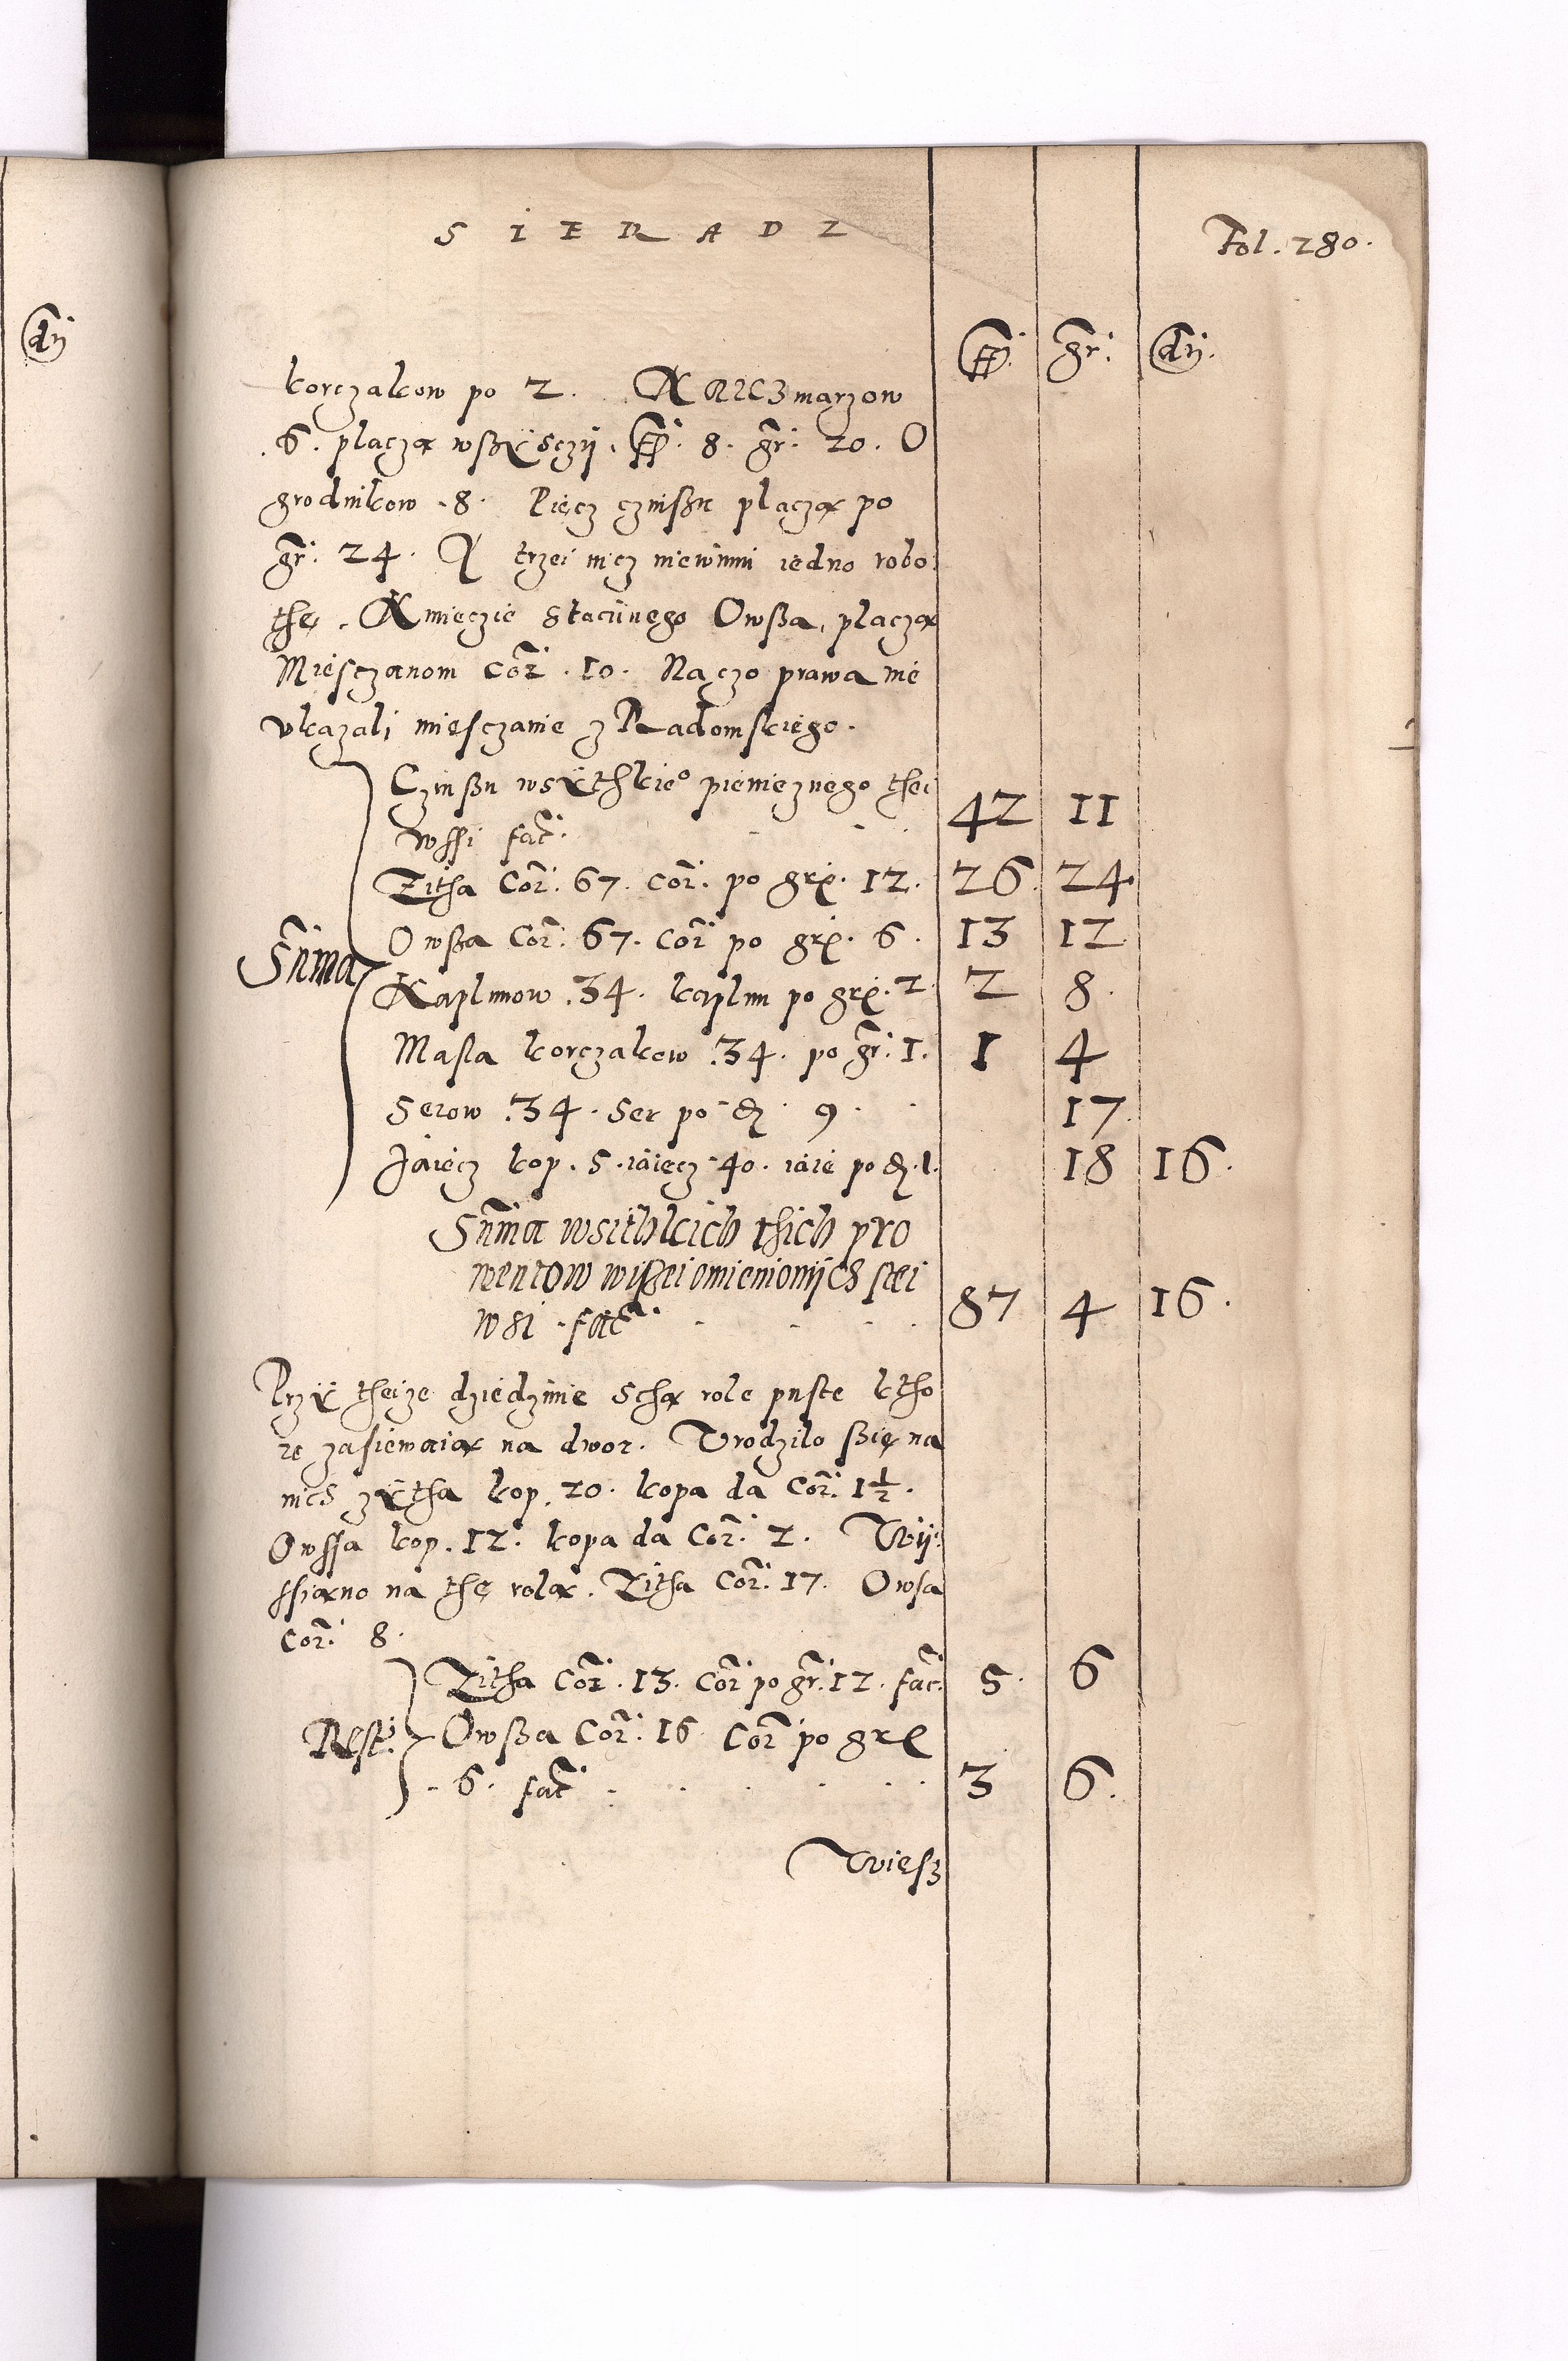 SIERADZ
Fol. 280.
fl. gr. dn.
dn
korczakow po 2. KARCZmarzow
.6. placzą wßÿsczÿ. fl. 8. gr. 20. O
grodnikow .8. Pięcz czinßu placzą po
gr. 24. A trzei nicz niewinni iedno robo
thę. Kmieczie staciinego Owßa, placzą
Miesczanom Cor. 10. Naczo prawa nie
vkazali miesczanie z Radomskiego.
Czinßu wsÿthkie° pienieznego thei
wssi fac. 42 11
Zitha Cor. 67. Cor. po grę. 12. 26. 24.
Owßa Cor. 67. Cor po grę. 6. 13 12
Suma
Kaplunow .34. kaplun po grę. 2. 2 8.
Masla korczakow .34. po gr. 1. 1 4
Serow .34. Ser po d 9. 17.
Jaiecz kop. 5. iaiecz 40. iaie po d. 1. 18 16.
Suma wsithkich thich pro
wentow wißei omienionijch stei
wsi fac 87 4 16.
Przÿ theize dziedzinie Schą role puste ktho
re zasiewaią na dwor. Vrodzilo ßię na
nich zÿtha kop. 20. kopa da Cor. 1½.
Owssa kop. 12. kopa da Cor. 2. Wij
ssiano na thę rolą. Zitha Cor. 17. Owsa
Cor. 8.
Zitha Cor. 13. Cor po gr. 12. fac. 5. 6
Rest. Owßa Cor. 16 Cor po grę
.6. fac 3 6.
Wiesz